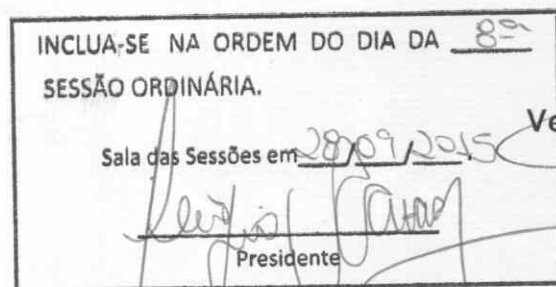 INCLUA-SE NA ORDEM DO DIA DA 8ª
SESSÃO ORDINÁRIA.
Ve
Sala das Sessões em 28/09/2015
Presidente